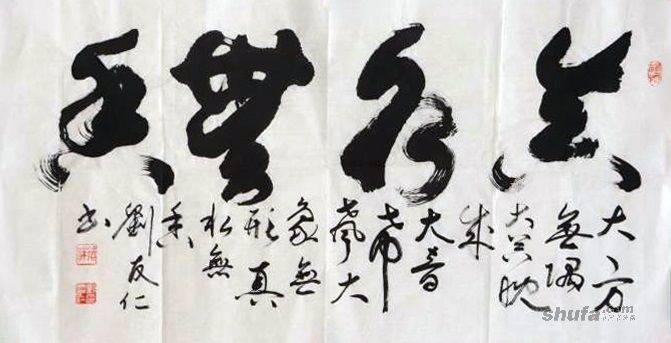 真水無香
大方
無隅
大器晚
成
大音
希
聲大
象無
形真
水無
香
劉友仁
书
shufa.com